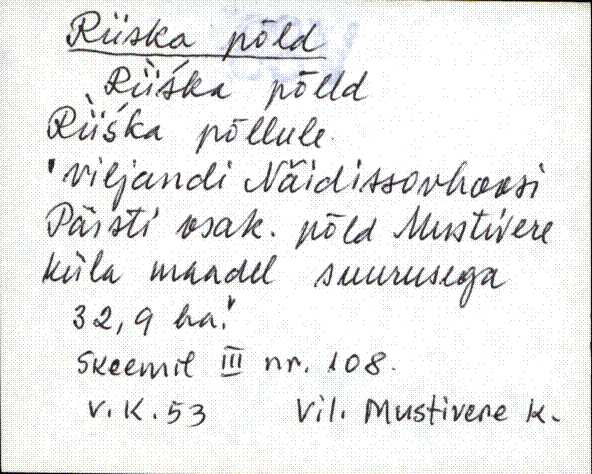 Riiska põld
Rìiśka põlld
Rìiśka põllule
"Viljandi Näidissovhoosi
Päisti osak. põld Mustivere
küla maadel suurusega
32,9 ha."
Skeemil III nr. 108.
V.K.53 Vil. Mustivere k.